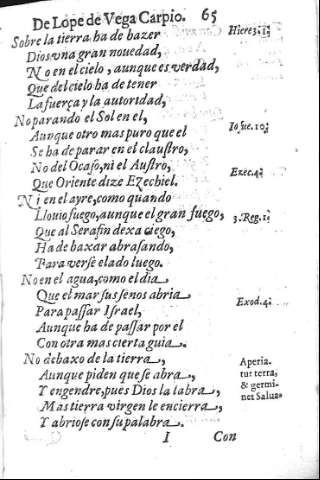 De Lope de Vega Carpio. 65
Sobre la tierra ha de hazer
Dios vna gran nouedad,
No en el cielo, aunque es verdad,
Que del cielo ha de tener
La fuerça y la autoridad,
No parando el Sol en el,
Aunque otro mas puro que el
Se ha de parar en el claustro,
No del Ocaso, ni el Austro,
Que Oriente dize Ezechiel.
Ni en el ayre, como quando
Llouio fuego, aunque el gran fuego,
Que al Serafin dexa ciego,
Ha de baxar abrasando,
Para verse elado luego.
No en el agua, como el dia
Que el mar sus senos abria
Para passar Israel,
Aunque ha de passar por el
Con otra mas cierta guia.
No debaxo de la tierra,
Aunque piden que se abra,
Y engendre, pues Dios la labra,
Mas tierra virgen le encierra,
Y abriose con su palabra.
I Con
Hiere 3.
Iosue. 10.
Ezec. 4.
3. Reg. 1.
Exod. 4.
Aperia.
tur terra,
& germi-
net Salua-